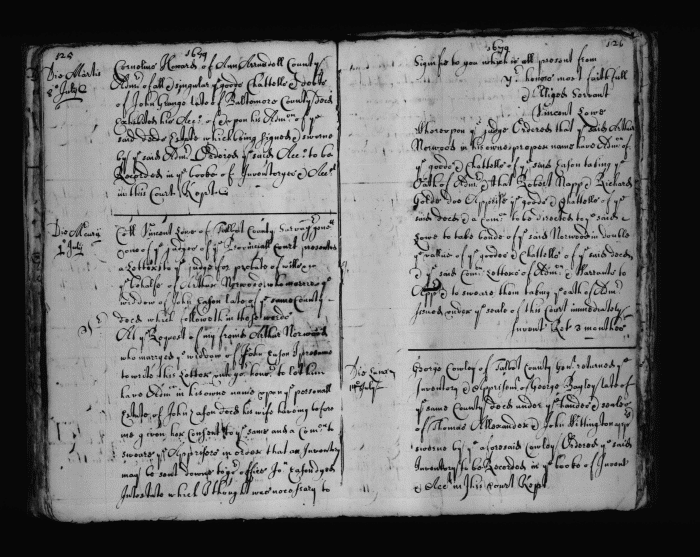 125
1679
Die Martis
8º July
Cornelius Howard of Ann Arundell County
Adm.r of all & singular yͤ goods Chattells & debts
of John Gongo late of Baltemore County decd
Exhibits his Acc.t of & upon his Adm.n of yͤ
said decds Estate which being signed & sworne
by yͤ said Adm.r Ordered yͤ said Acc.t to be
Recorded in yͤ booke of Inventoryes & Acc.ts
in this Court Kept
Die Mercur
9º July
Coll Vincent Lowe of Talbot County Survey.r gen.ll
one of yͤ Judges of yͤ Provinciall Court presents
a Letter to yͤ Judge for probate of wills in
yͤ behalfe of Arthur Norwood who marryed yͤ
widdow of John Eason late of yͤ same County
decd which followeth in these words
S.r
At yͤ Request of my friend Arthur Norwood
who marryed yͤ widdow of John Eason I presume
to write this Letter to let him
have Adm.n in his owne name upon yͤ personall
Estate of John Eason decd his wife having before
me given her Consent to yͤ same and a Com.n to
sweare yͤ Apprisers in order that an Inventory
may be sent downe to yͤ office Jn.o Eason dyed
Intestate which I thought was necessary to
1679
126
Signifie to you which is all present from
Yͬ honors most faithfull
& obliged Servant
Vincent Lowe
Whereupon yͤ Judge Ordered that yͤ said Arthur
Norwood in his owne proper name have Adm.n of
yͤ goods & Chattells of yͤ said Eason taking yͤ
Oath of Adm.r & that Robert Napp & Richard
doe Apprise yͤ goods & Chattells of yͤ
said decd & a Com.n to be directed to yͤ said
Lowe to take bond of yͤ said Norwood in double
yͤ value of yͤ goods & Chattells of yͤ said decd
& yͤ said Com.n Letters of Adm.n & Warrant to
App.r & to sweare them taking yͤ oath of Adm.r
issued under yͤ seale of this Court immediately
Invent.y Ret 3 months
Die Veneris
11º July
George Cowley of Talbot County Gen.t returned yͤ
Inventory & Apprisem.t of George Bayley late of
yͤ same County decd under yͤ hands & seales
of Thomas Alexander & John Whittington app.rs
sworne by yͤ aforesaid Cowley Ordered yͤ said
Inventory to be Recorded in yͤ booke of Invent.
& Acc.ts in this Court Kept